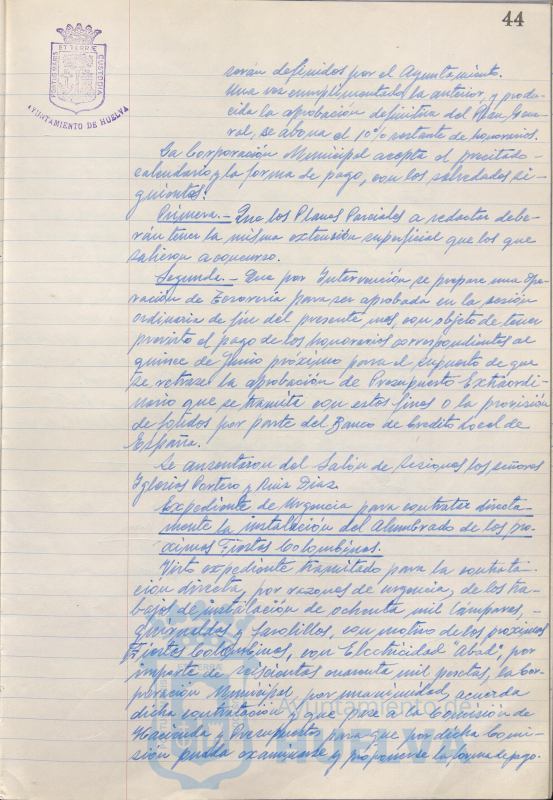 44
PORTUS MARIS ET TERRE CUSTODIA
AYUNTAMIENTO DE HUELVA
serán definidos por el Ayuntamiento.
Una vez cumplimentados la anterior, y produ-
cida la aprobación definitiva del Plan Gene-
ral, se abona el 10% restante de honorarios.
La Corporación Municipal acepta el precitado
calendario y la forma de pago, con las salvedades si-
guientes:
Primera.- Que los Planes Parciales a redactar debe-
rán tener la misma extensión superficial que los que
salieron a concurso.
Segunda.- Que por Intervención se prepare una Ope-
ración de Tesorería para ser aprobada en la sesión
ordinaria de fin del presente mes, con objeto de tener
previsto el pago de los honorarios correspondientes al
quince de Junio próximo para el supuesto de que
se retrase la aprobación de Presupuesto Extraordi-
nario que se tramita con estos fines o la provisión
de fondos por parte del Banco de Crédito Local de
España.
Se ausentaron del Salón de Sesiones los señores
Iglesias Portero y Ruiz Díaz.
Expediente de Urgencia para contratar directa-
mente la instalación del Alumbrado de las pró-
ximas Fiestas Colombinas.
Visto expediente tramitado para la contrata-
ción directa, por razones de urgencia, de los tra-
bajos de instalación de ochenta mil lámparas, -
guirnaldas y farolillos, con motivo de las próximas
Fiestas Colombinas, con Electricidad "Abad", por
importe de seiscientas cuarenta mil pesetas, la Cor-
poración Municipal, por unanimidad, acuerda
dicha contratación y que pase a la Comisión de
Hacienda y Presupuestos para que por dicha Comi-
sión pueda examinarse y proponerse la forma de pago.
Ayuntamiento de
HUELVA